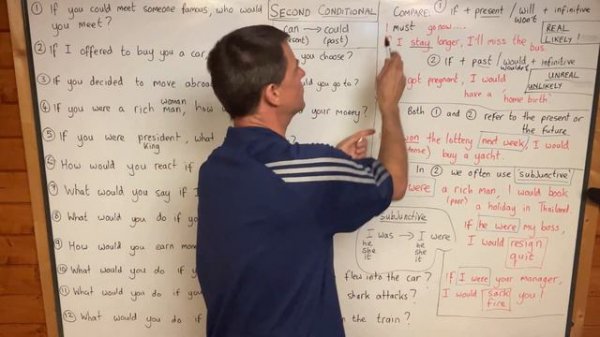 ① If you could meet someone famous, who would
you meet?
② If I offered to buy you a car
you choose?
③ If you decided to move abroad
you go to?
④ If you were a rich man, how
woman
your money?
⑤ If you were president, what
King
⑥ How would you react if
⑦ What would you say if I
⑧ What would you do if yo
⑨ How would you earn mone
⑩ What would you do if
flew into the car?
⑪ What would you do if
shark attacks?
⑫ What would you do if
the train?
SECOND CONDITIONAL
can → could
(past)
subjunctive
I was → I were
he he
she she
it it
COMPARE
① if + present / will + infinitive
won't
I must go now....
I stay longer, I'll miss the bus.
REAL
LIKELY!
② If + past / would + infinitive
wouldn't
got pregnant, I would
have a home birth
UNREAL
UNLIKELY
Both ① and ② refer to the present or
the future.
won the lottery next week, I would
buy a yacht.
In ② we often use 'subjunctive'
were a rich man, I would book
(poor) a holiday in Thailand
If he were my boss,
I would resign
quit
If I were your manager,
I would sack you!
fire